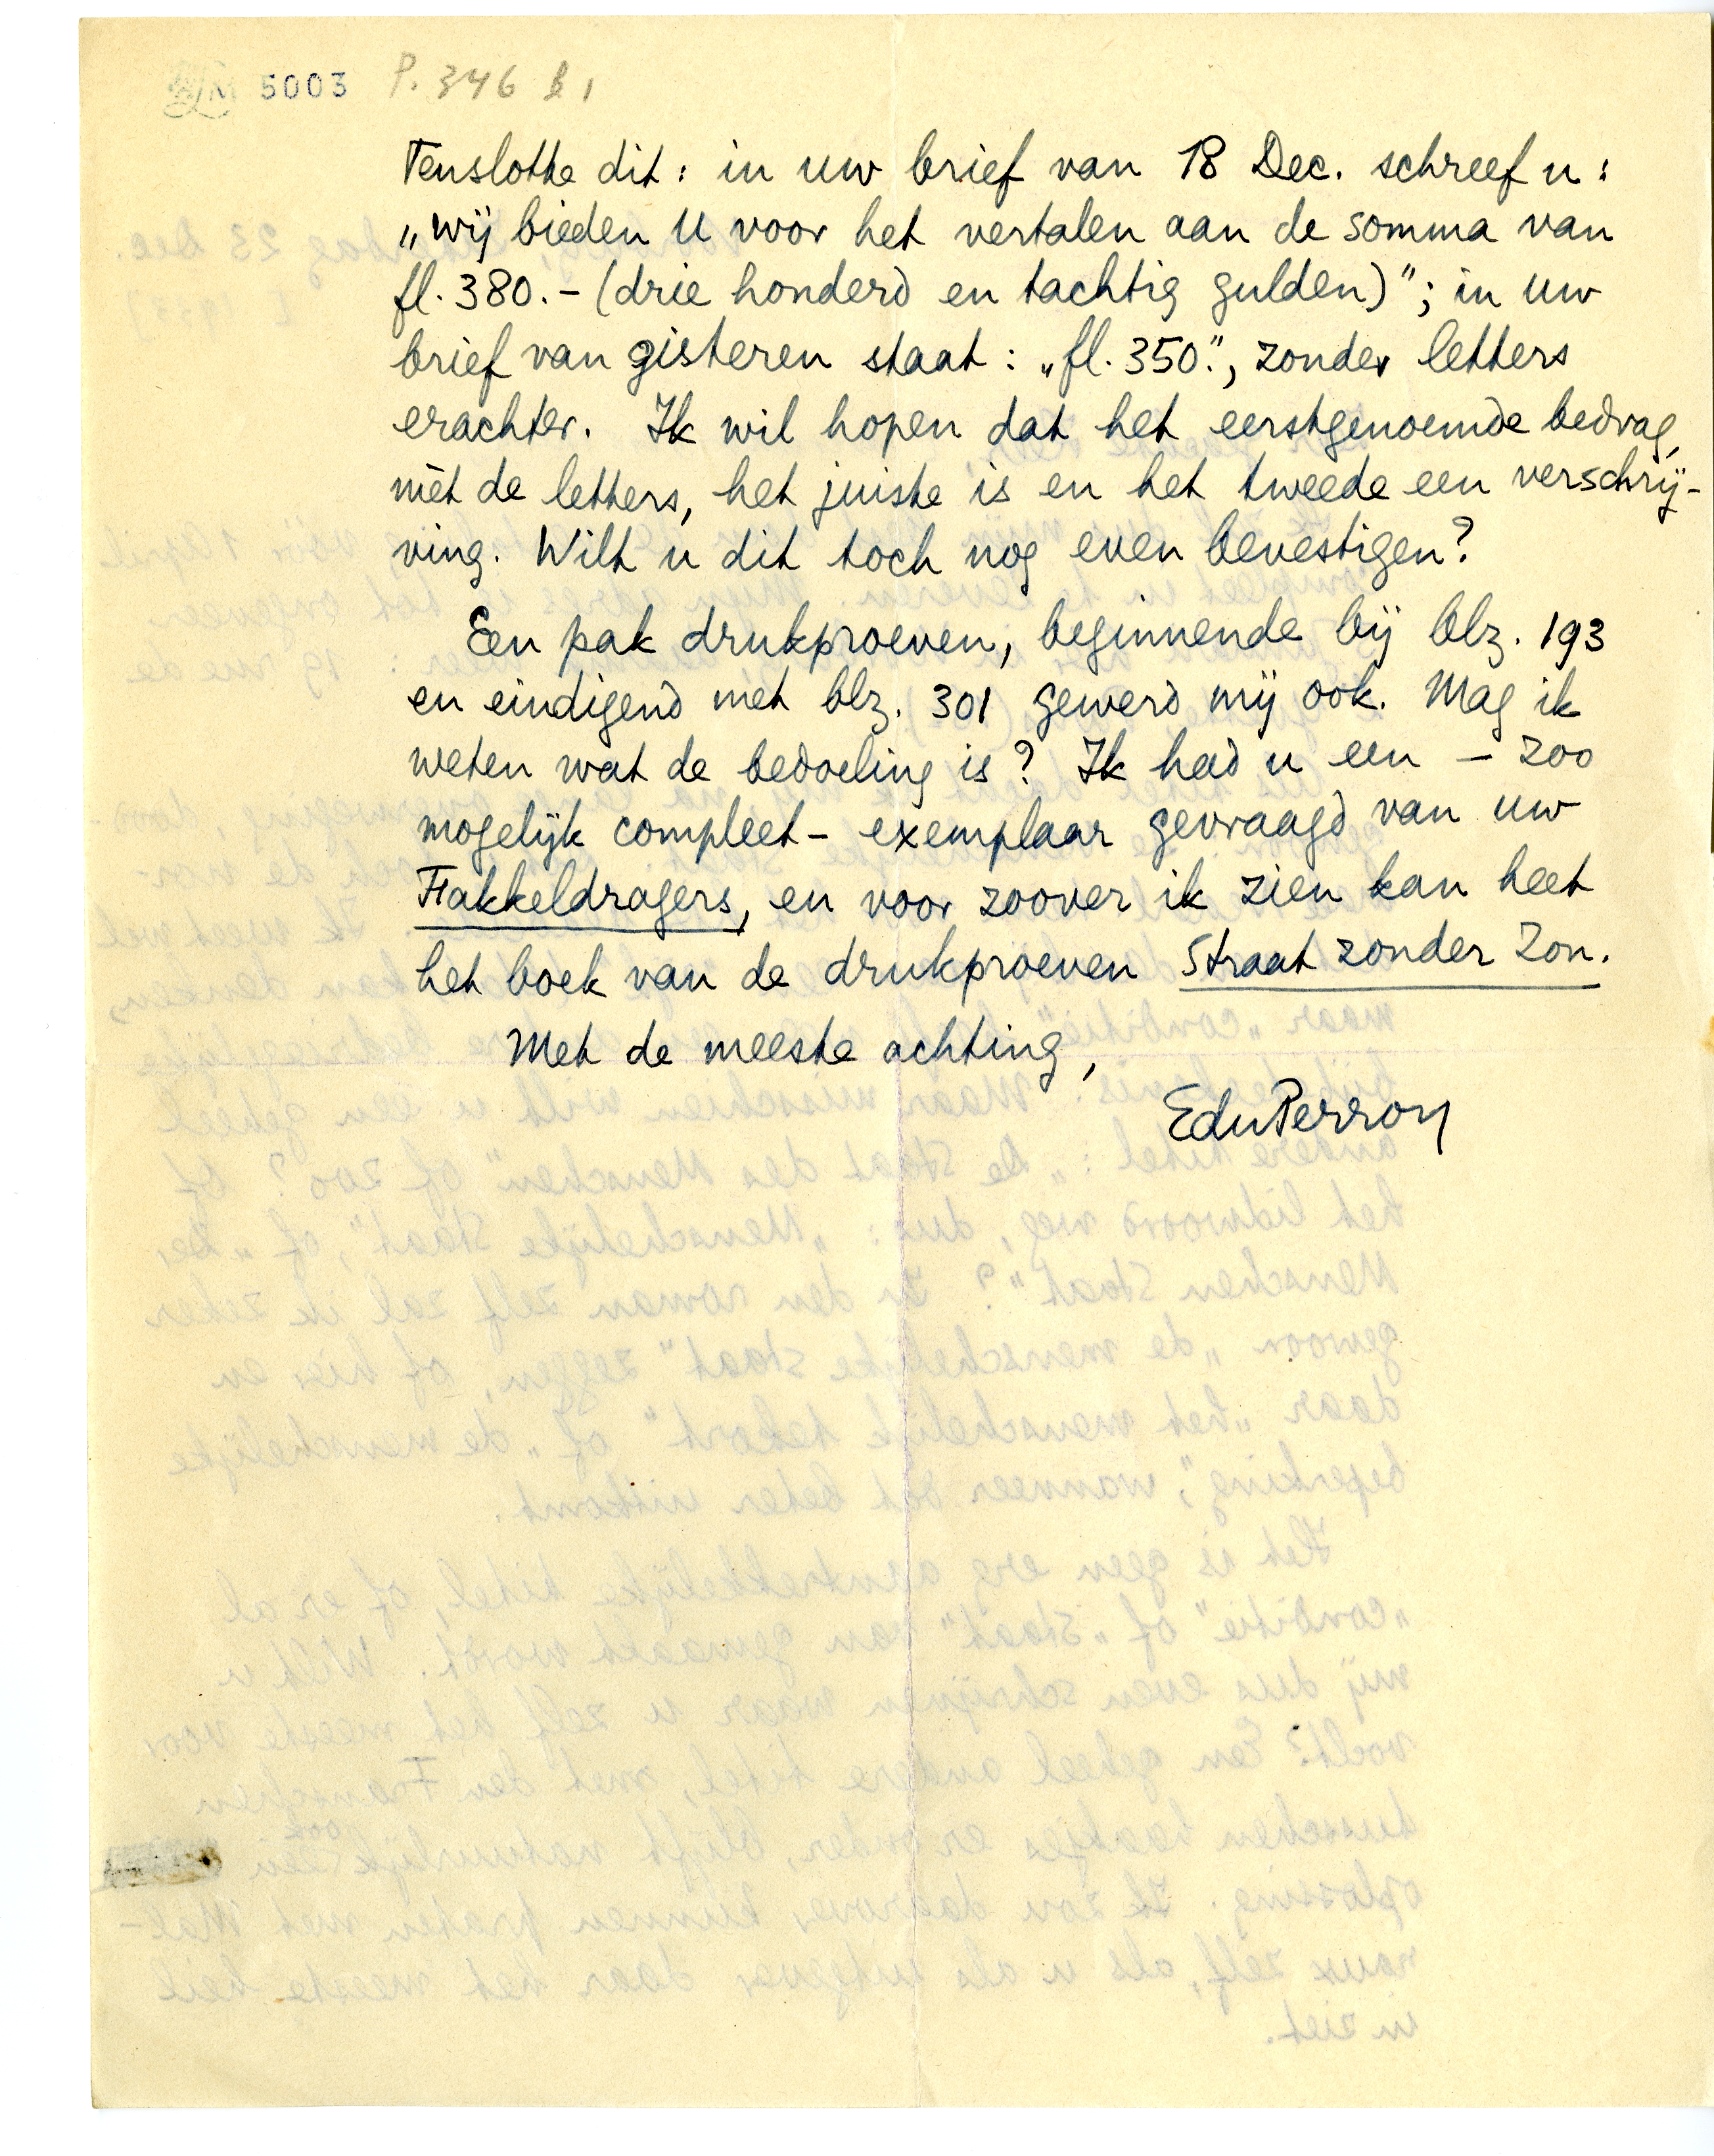 5003 P. 346 B 1
Tenslotte dit: in uw brief van 18 Dec. schreef u:
„wij bieden U voor het vertalen aan de somma van
fl. 380.- (drie honderd en tachtig gulden)"; in uw
brief van gisteren staat: „fl. 350.", zonder letters
erachter. Ik wil hopen dat het eerstgenoemde bedrag,
mèt de letters, het juiste is en het tweede een verschrij-
ving. Wilt u dit toch nog even bevestigen?
Een pak drukproeven, beginnende bij blz. 193
en eindigend met blz. 301 gewerd mij ook. Mag ik
weten wat de bedoeling is? Ik had u een – zoo
mogelijk compleet – exemplaar gevraagd van uw
Fakkeldragers, en voor zoover ik zien kan heet
het boek van de drukproeven Straat zonder Zon.
Met de meeste achting,
EduPerron